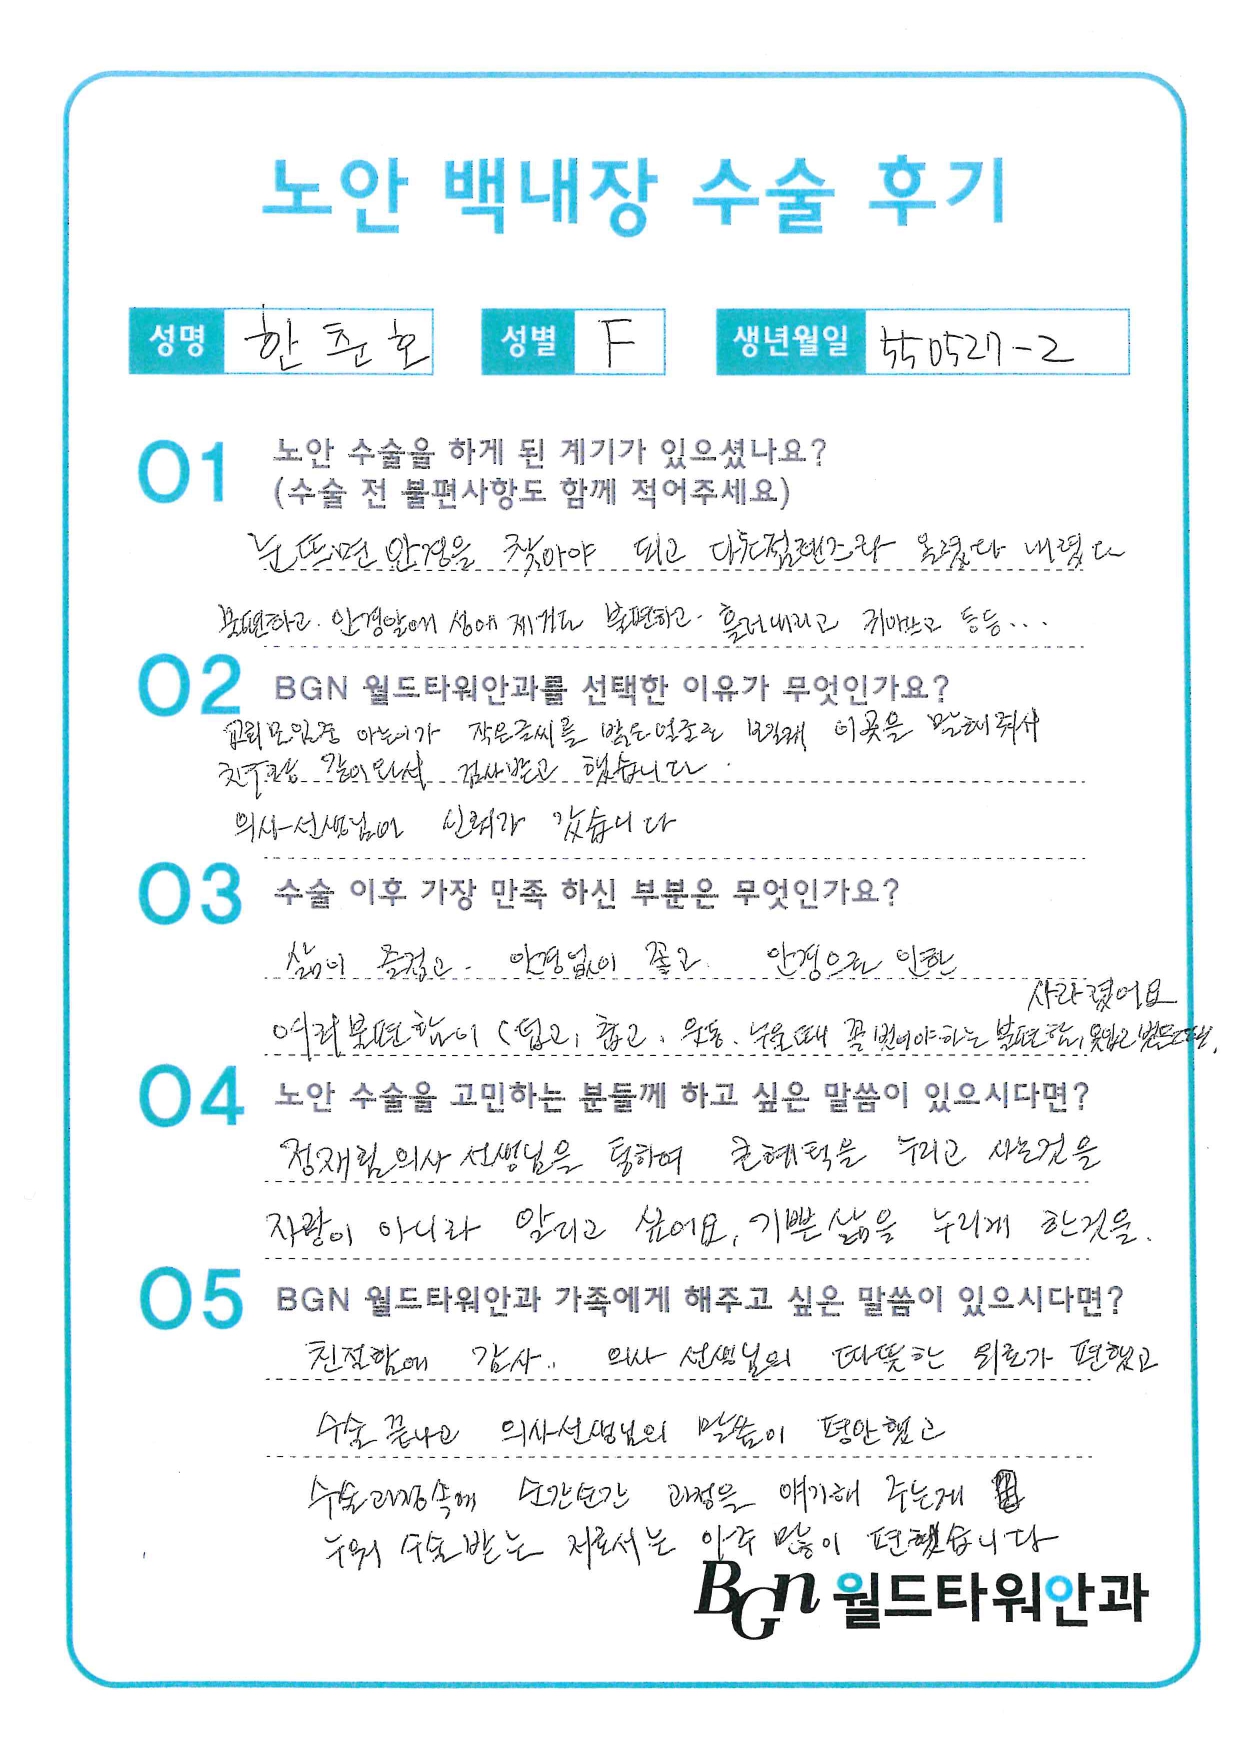 노안 백내장 수술 후기
성명 한준호 성별 F 생년월일 550527-2
01 노안 수술을 하게 된 계기가 있으셨나요?
(수술 전 불편사항도 함께 적어주세요)
눈뜨면 안경을 찾아야 되고 다초점렌즈라 올렸다 내렸다
불편하고. 안경알에 성에 제거도 불편하고. 흘러내리고 귀아프고 등등...
02 BGN 월드타워안과를 선택한 이유가 무엇인가요?
교회모임중 아는이가 작은글씨를 보일때 이곳을 말해줘서
친구랑 같이와서 검사받고 했습니다.
의사선생님이 신뢰가 갔습니다
03 수술 이후 가장 만족 하신 부분은 무엇인가요?
삶이 즐겁고. 안경없이 좋고. 안경으로 인한
사라졌어요
여러불편함이 (덥고, 춥고, 운동, 누울때 꼭 벗어야하는 불편함, 옷입고
04 노안 수술을 고민하는 분들께 하고 싶은 말씀이 있으시다면?
정재림의사 선생님을 통하여 큰혜택을 누리고 사는것을
자랑이 아니라 알리고 싶어요, 기쁜삶을 누리게 한것을.
05 BGN 월드타워안과 가족에게 해주고 싶은 말씀이 있으시다면?
친절함에 감사.. 의사 선생님의 따뜻한 위로가 편했고
수술 끝나고 의사선생님의 말씀이 평안했고
수술과정속에 순간순간 과정을 얘기해 주는게
누워 수술받는 저로서는 아주 많이 편했습니다
BGN 월드타워안과